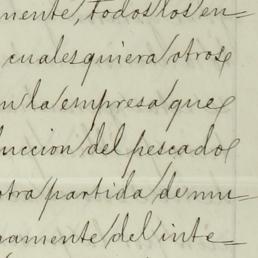 mente, todos los en=
cualesquiera otros
n la empresa que
duccion del pescado
otra partida de mu=
amente del inte=